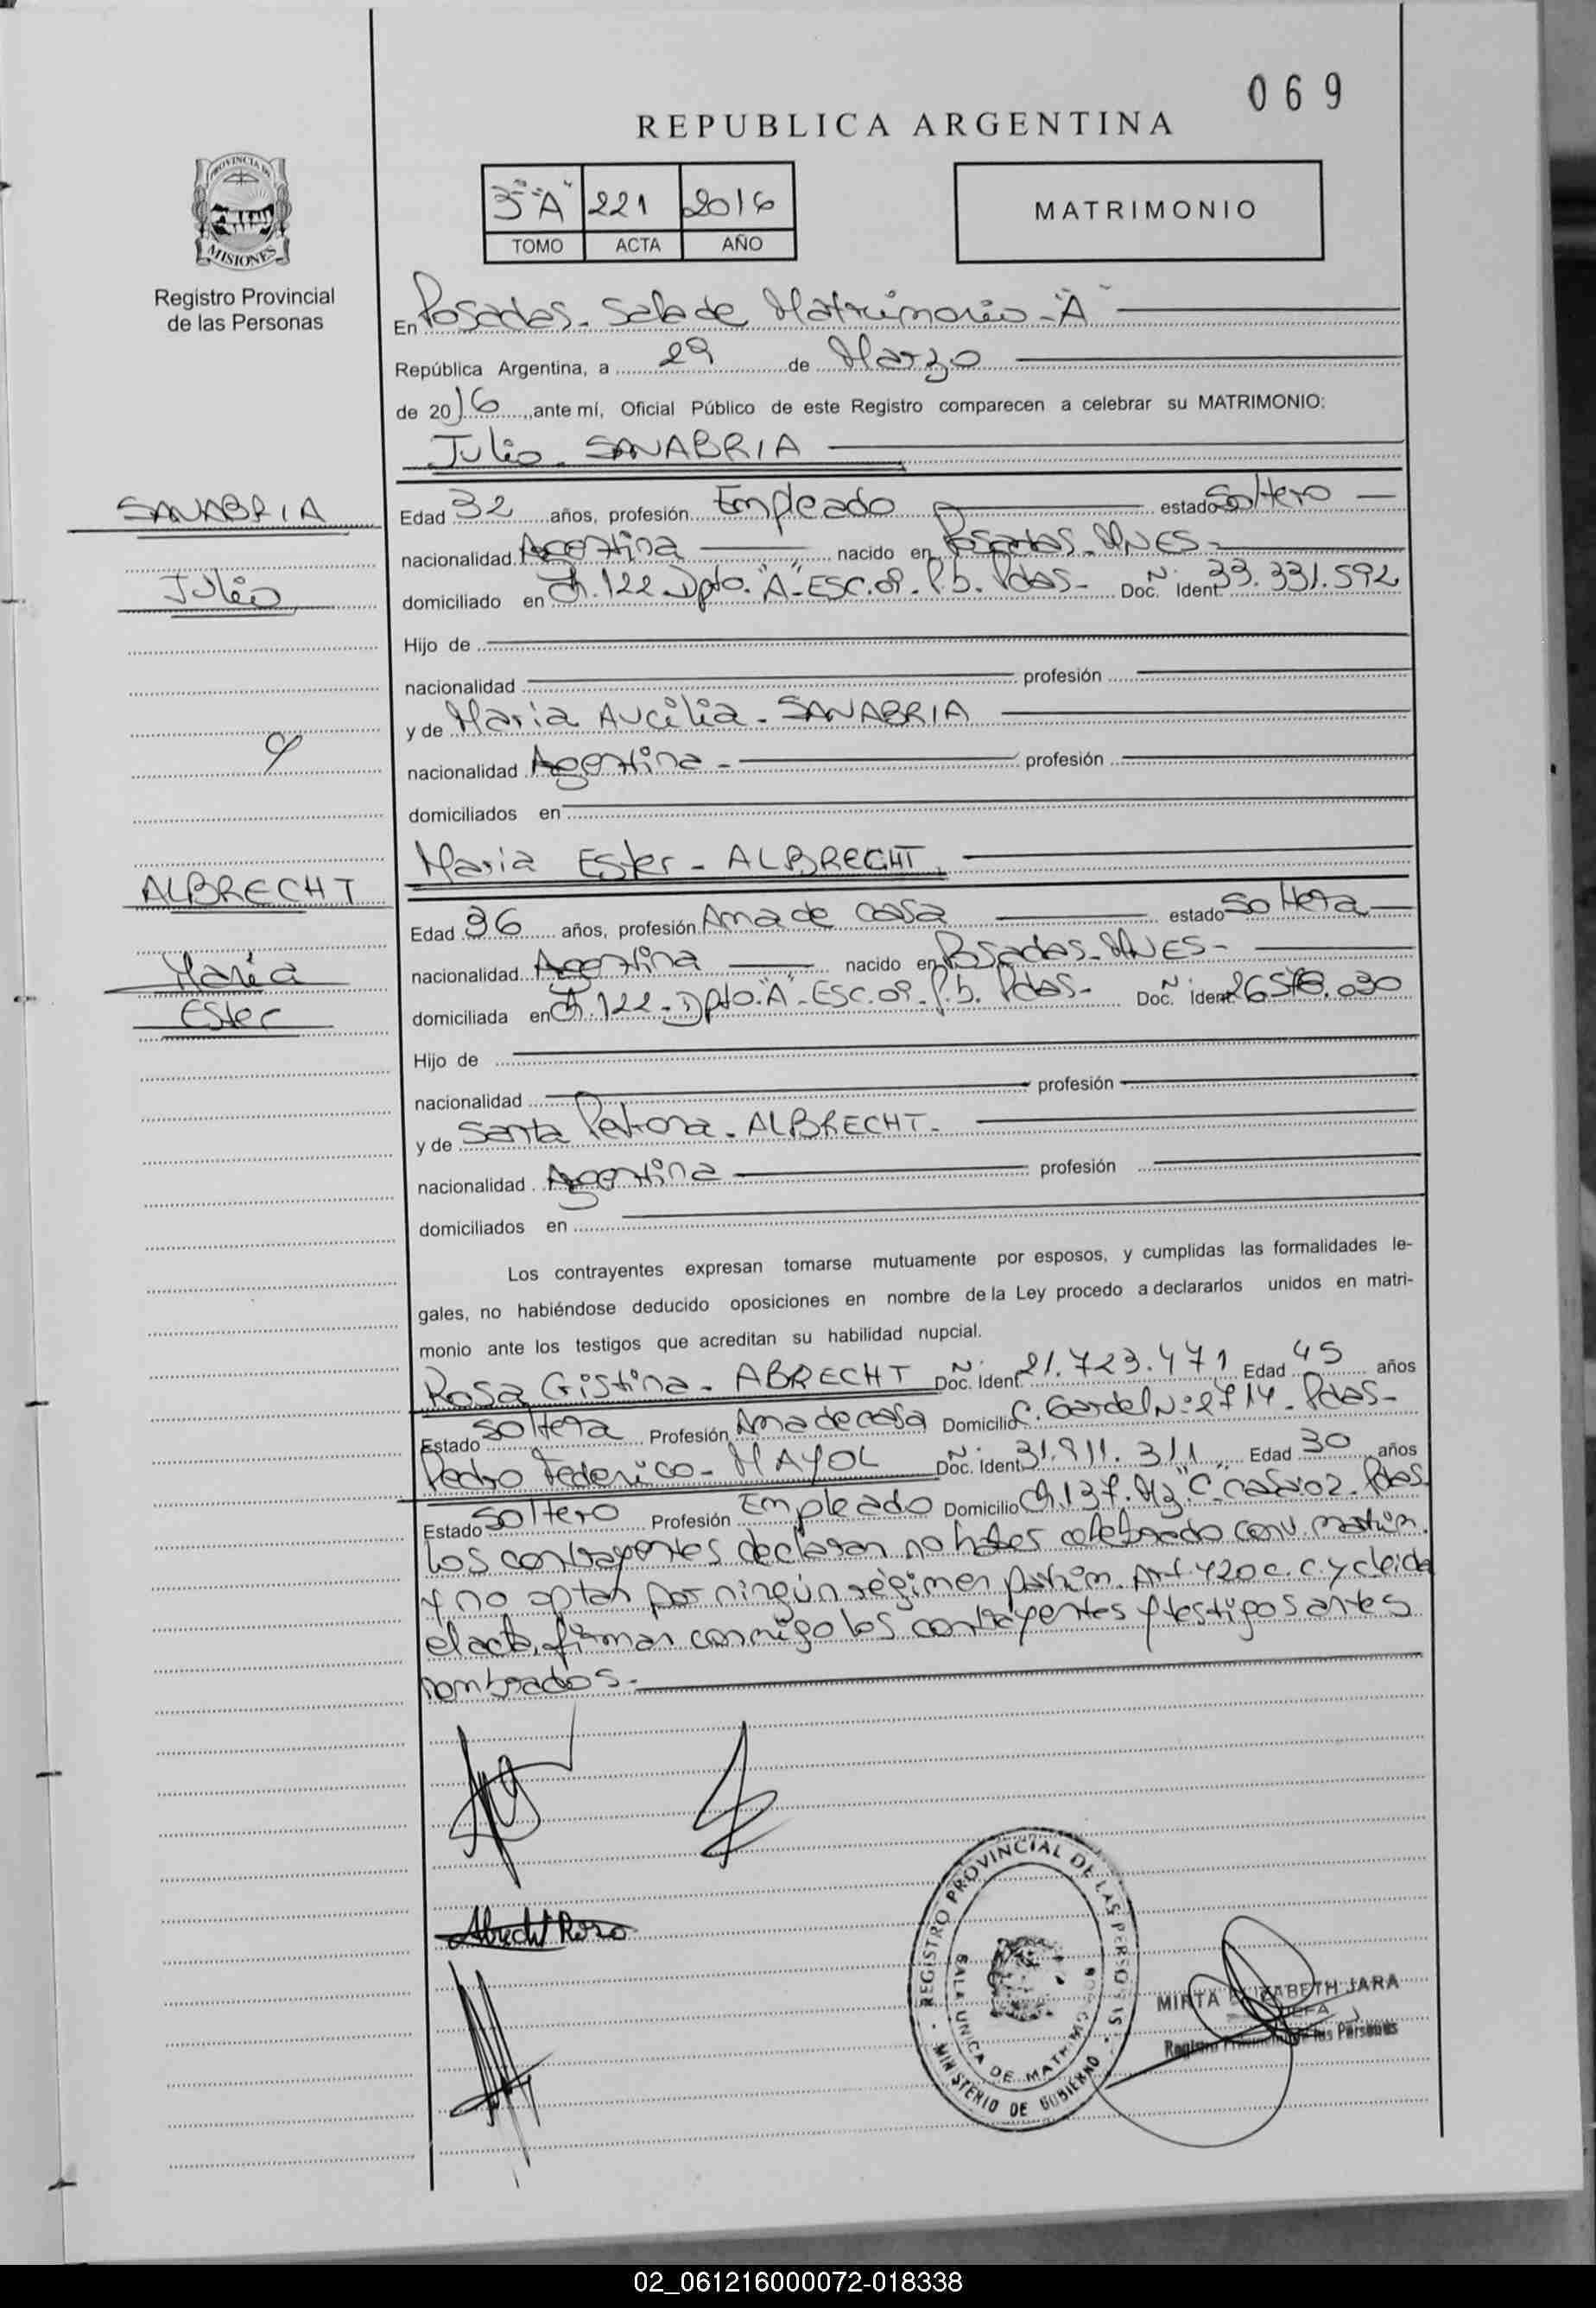 069
REPUBLICA ARGENTINA
PROVINCIA DE
MISIONES
Registro Provincial
de las Personas
3º "A" 221 2016
TOMO ACTA AÑO
MATRIMONIO
En Posadas - Sala de Matrimonio - "A"
República Argentina, a 29 de Marzo
de 2016, ante mí, Oficial Público de este Registro comparecen a celebrar su MATRIMONIO:
Julio - SANABRIA
SANABRIA
Julio
Edad 32 años, profesión Empleado estado Soltero
nacionalidad Argentina nacido en Posadas - MNES -
domiciliado en Ch. 122 Dpto. "A" - ESC. 09 - P.b. Pdas - Doc. Nº Ident. 33.331.592
Hijo de
nacionalidad profesión
y de Maria Aucilia - SANABRIA
nacionalidad Argentina - profesión
domiciliados en
Maria Ester - ALBRECHT
y
ALBRECHT
Maria
Ester
Edad 36 años, profesión Ama de casa estado Soltera
nacionalidad Argentina nacido en Posadas - MNES -
domiciliada en Ch. 122 - Dpto. "A" - ESC. 09 - P.b. Pdas - Doc. Nº Ident.
Hijo de
nacionalidad profesión
y de Santa Petrona - ALBRECHT -
nacionalidad Argentina profesión
domiciliados en
Los contrayentes expresan tomarse mutuamente por esposos, y cumplidas las formalidades le-
gales, no habiéndose deducido oposiciones en nombre de la Ley procedo a declararlos unidos en matri-
monio ante los testigos que acreditan su habilidad nupcial.
Rosa Cristina - ABRECHT Doc. Nº Ident. 21.723.471 Edad 45 años
Estado Soltera Profesión Ama de casa Domicilio C. Gardel Nº 2714 - Pdas -
Pedro Federico - MAYOL Doc. Nº Ident. 31.911.311 Edad 30 años
Estado Soltero Profesión Empleado Domicilio Ch. 137. Mz "C" casa 02 - Pdas.
Los contrayentes declaran no haber celebrado conv. matrim.
y no optan por ningún régimen patrim. Art. 420 c. c. y leida
el acta, firman conmigo los contrayentes y testigos antes
nombrados. -
Albrecht Rosa
REGISTRO PROVINCIAL DE LAS PERSONAS
SALA UNICA DE MATRIMONIO
MINISTERIO DE GOBIERNO
MIRTA ELIZABETH JARA
JEFA
Registro Provincial de las Personas
02_061216000072-018338